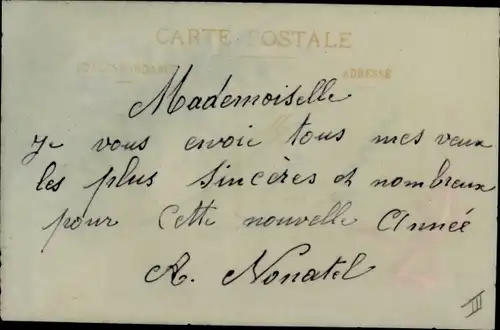 CARTE POSTALE
CORRESPONDANCE ADRESSE
Mademoiselle
Je vous envoie tous mes vœux
les plus sincères et nombreux
pour cette nouvelle Année
A. Nonatel
III